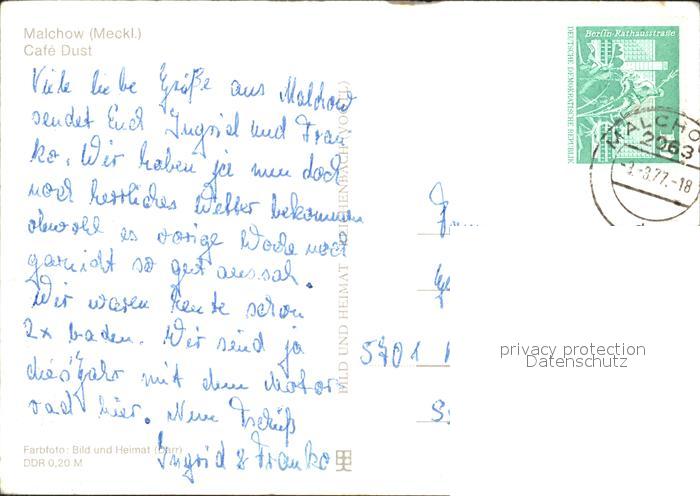 Malchow (Meckl.)
Café Dust
Viele liebe Grüße aus Malchow
sendet Euch Ingrid und Fran
ko. Wir haben ja nun doch
noch herrliches Wetter bekommen
obwohl es vorige Woche noch
garnicht so gut aussah.
Wir waren heute schon
2x baden. Wir sind ja
dies Jahr mit dem Motor
rad hier. Nun Tschüß
Ingrid & Franko
Farbfoto: Bild und Heimat (Darr)
DDR 0,20 M
BILD UND HEIMAT REICHENBACH (VOGTL)
5701
Berlin-Rathausstraße
DEUTSCHE DEMOKRATISCHE REPUBLIK
MALCHO
2063
-3.-8.77.-18
privacy protection
Datenschutz